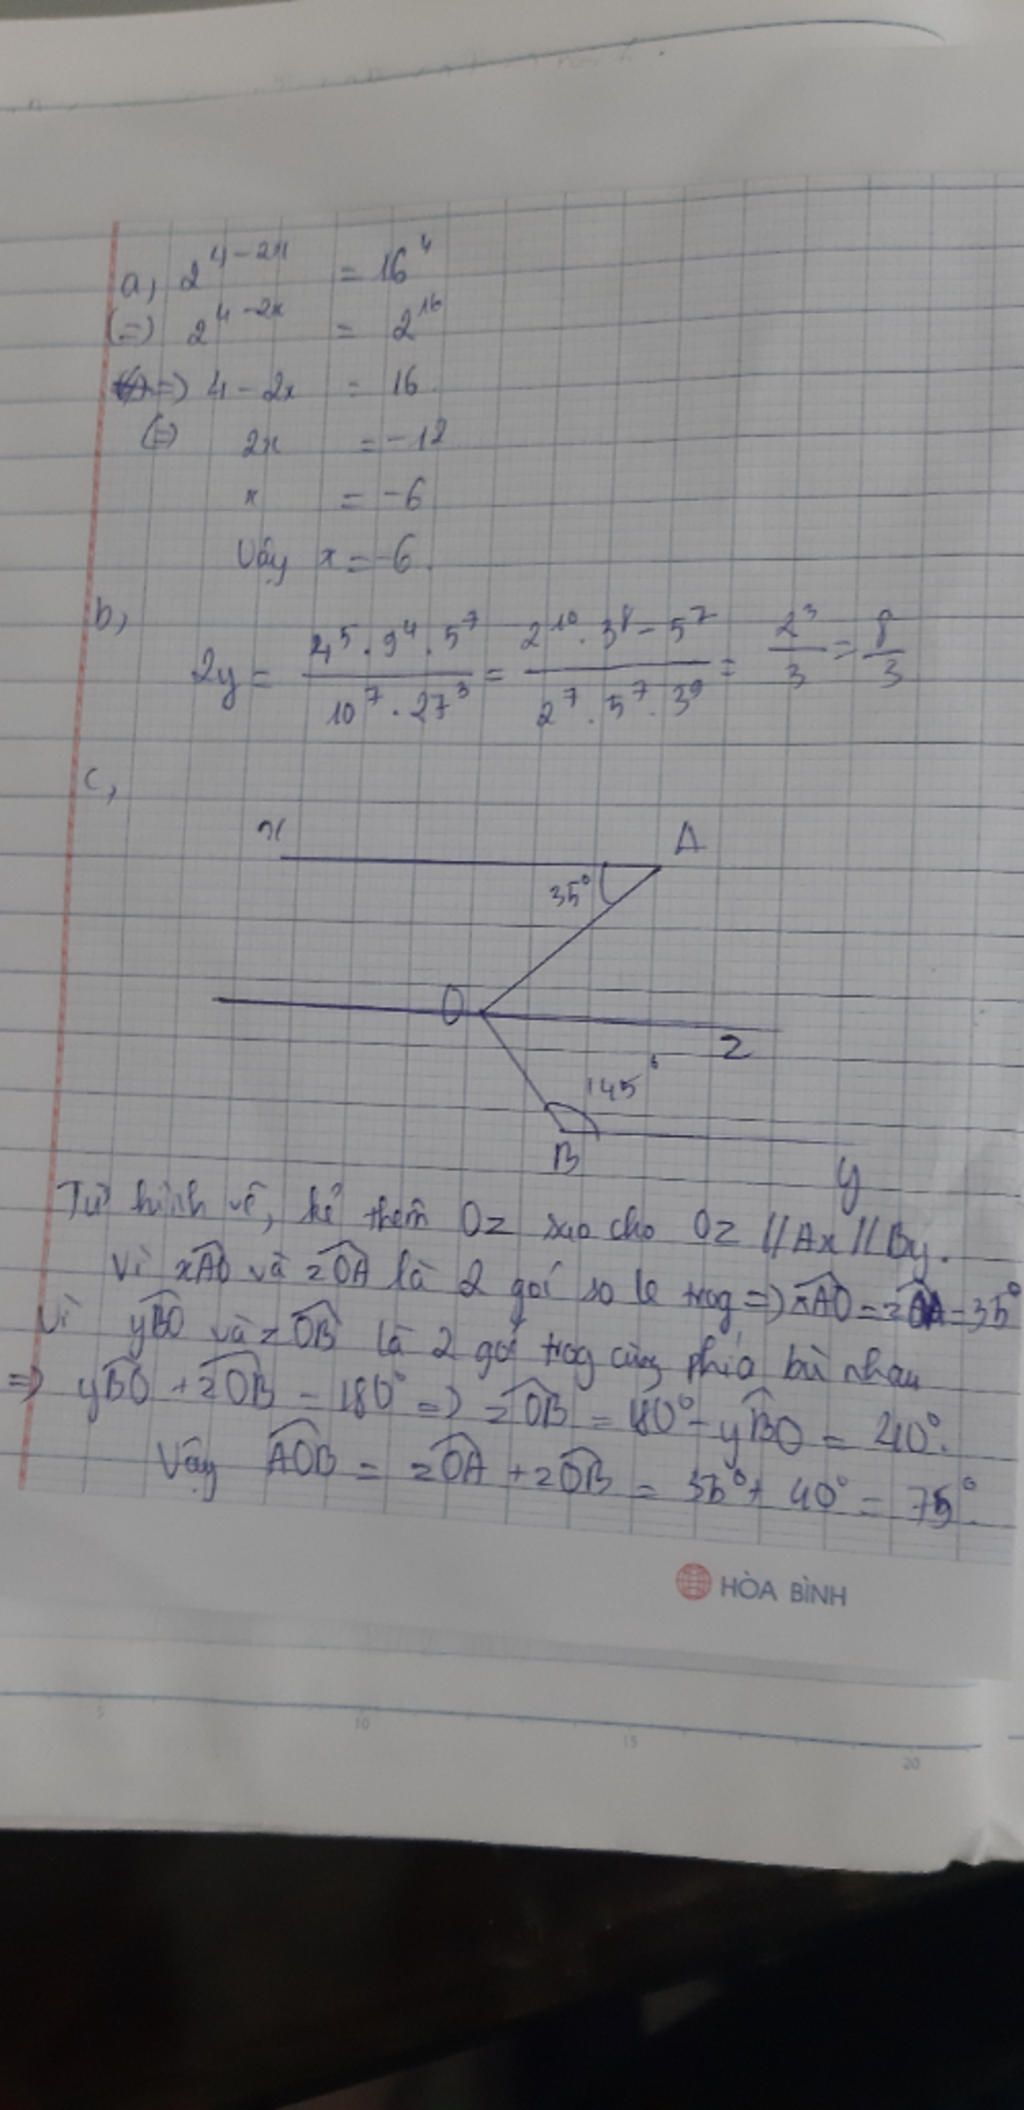 a, 2^{4-2x} = 16^4
(=) 2^{4-2x} = 2^{16}
(=) 4-2x = 16
(=) 2x = -12
x = -6
Vậy x = -6.
b,
2y = \frac{4^5 . 9^4 . 5^7}{10^7 . 27^3} = \frac{2^{10} . 3^8 - 5^7}{2^7 . 5^7 . 3^9} = \frac{2^3}{3} = \frac{8}{3}
c,
x A
35°
O z
145°
B y
Từ hình vẽ, kẻ thêm Oz sao cho Oz // Ax // By.
Vì \widehat{xAO} và \widehat{zOA} là 2 goí so le trog => \widehat{xAO} = \widehat{zOA} = 35°
Vì \widehat{yBO} và \widehat{zOB} là 2 goí trog cùng phía bù nhau
=> \widehat{yBO} + \widehat{zOB} = 180° => \widehat{zOB} = 180° - \widehat{yBO} = 40°.
Vậy \widehat{AOB} = \widehat{zOA} + \widehat{zOB} = 35° + 40° = 75°.
HÒA BÌNH
5 10 15 20